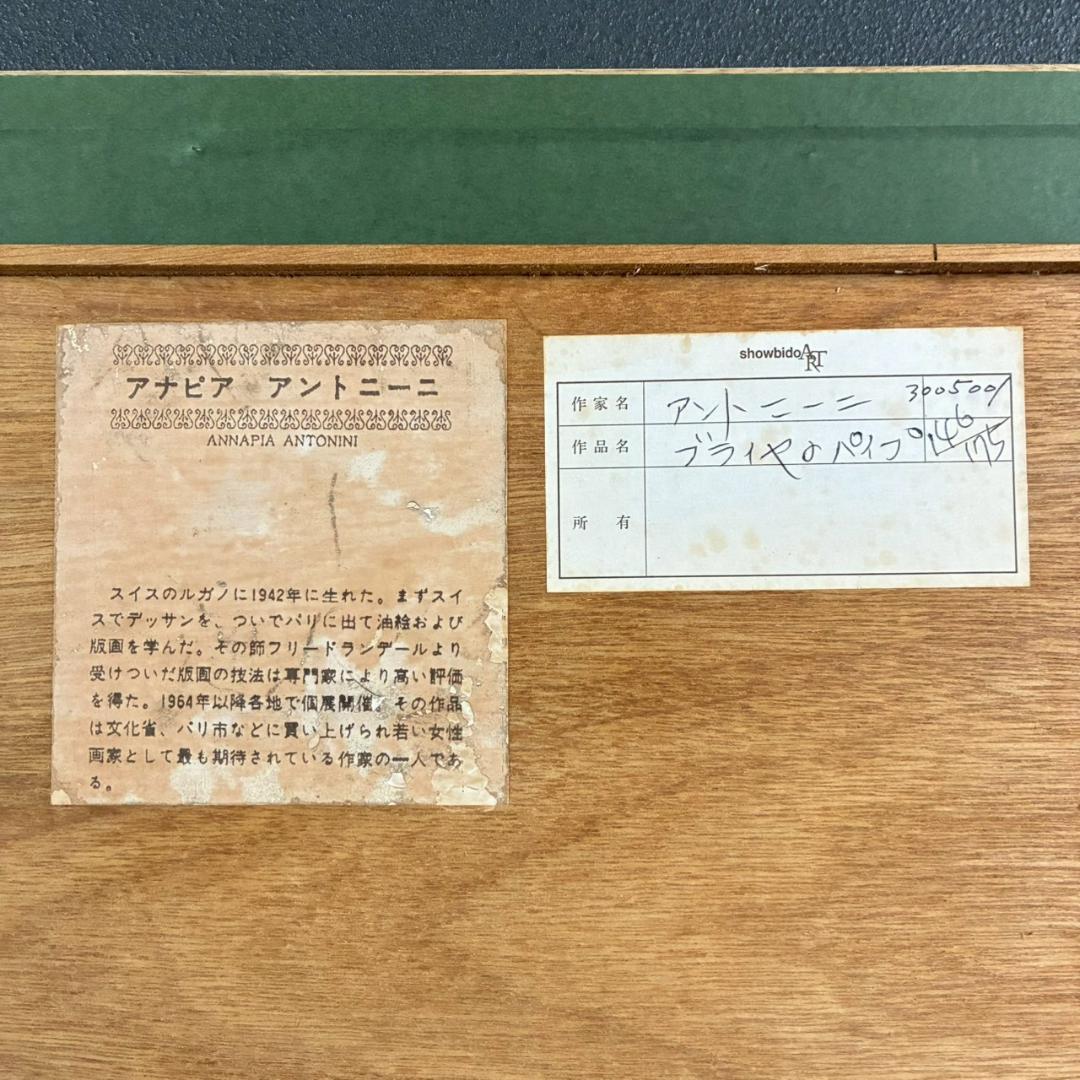 アナピア アントニーニ
ANNAPIA ANTONINI
スイスのルガノに1942年に生れた。まずスイ
スでデッサンを、ついでパリに出て油絵および
版画を学んだ。その師フリードランデールより
受けついだ版画の技法は専門家により高い評価
を得た。1964年以降各地で個展開催。その作品
は文化省、パリ市などに買い上げられ若い女性
画家として最も期待されている作家の一人であ
る。
showbido ART
作家名 アントニーニ 3005001
作品名 ブライヤのパイプ 146/175
所有